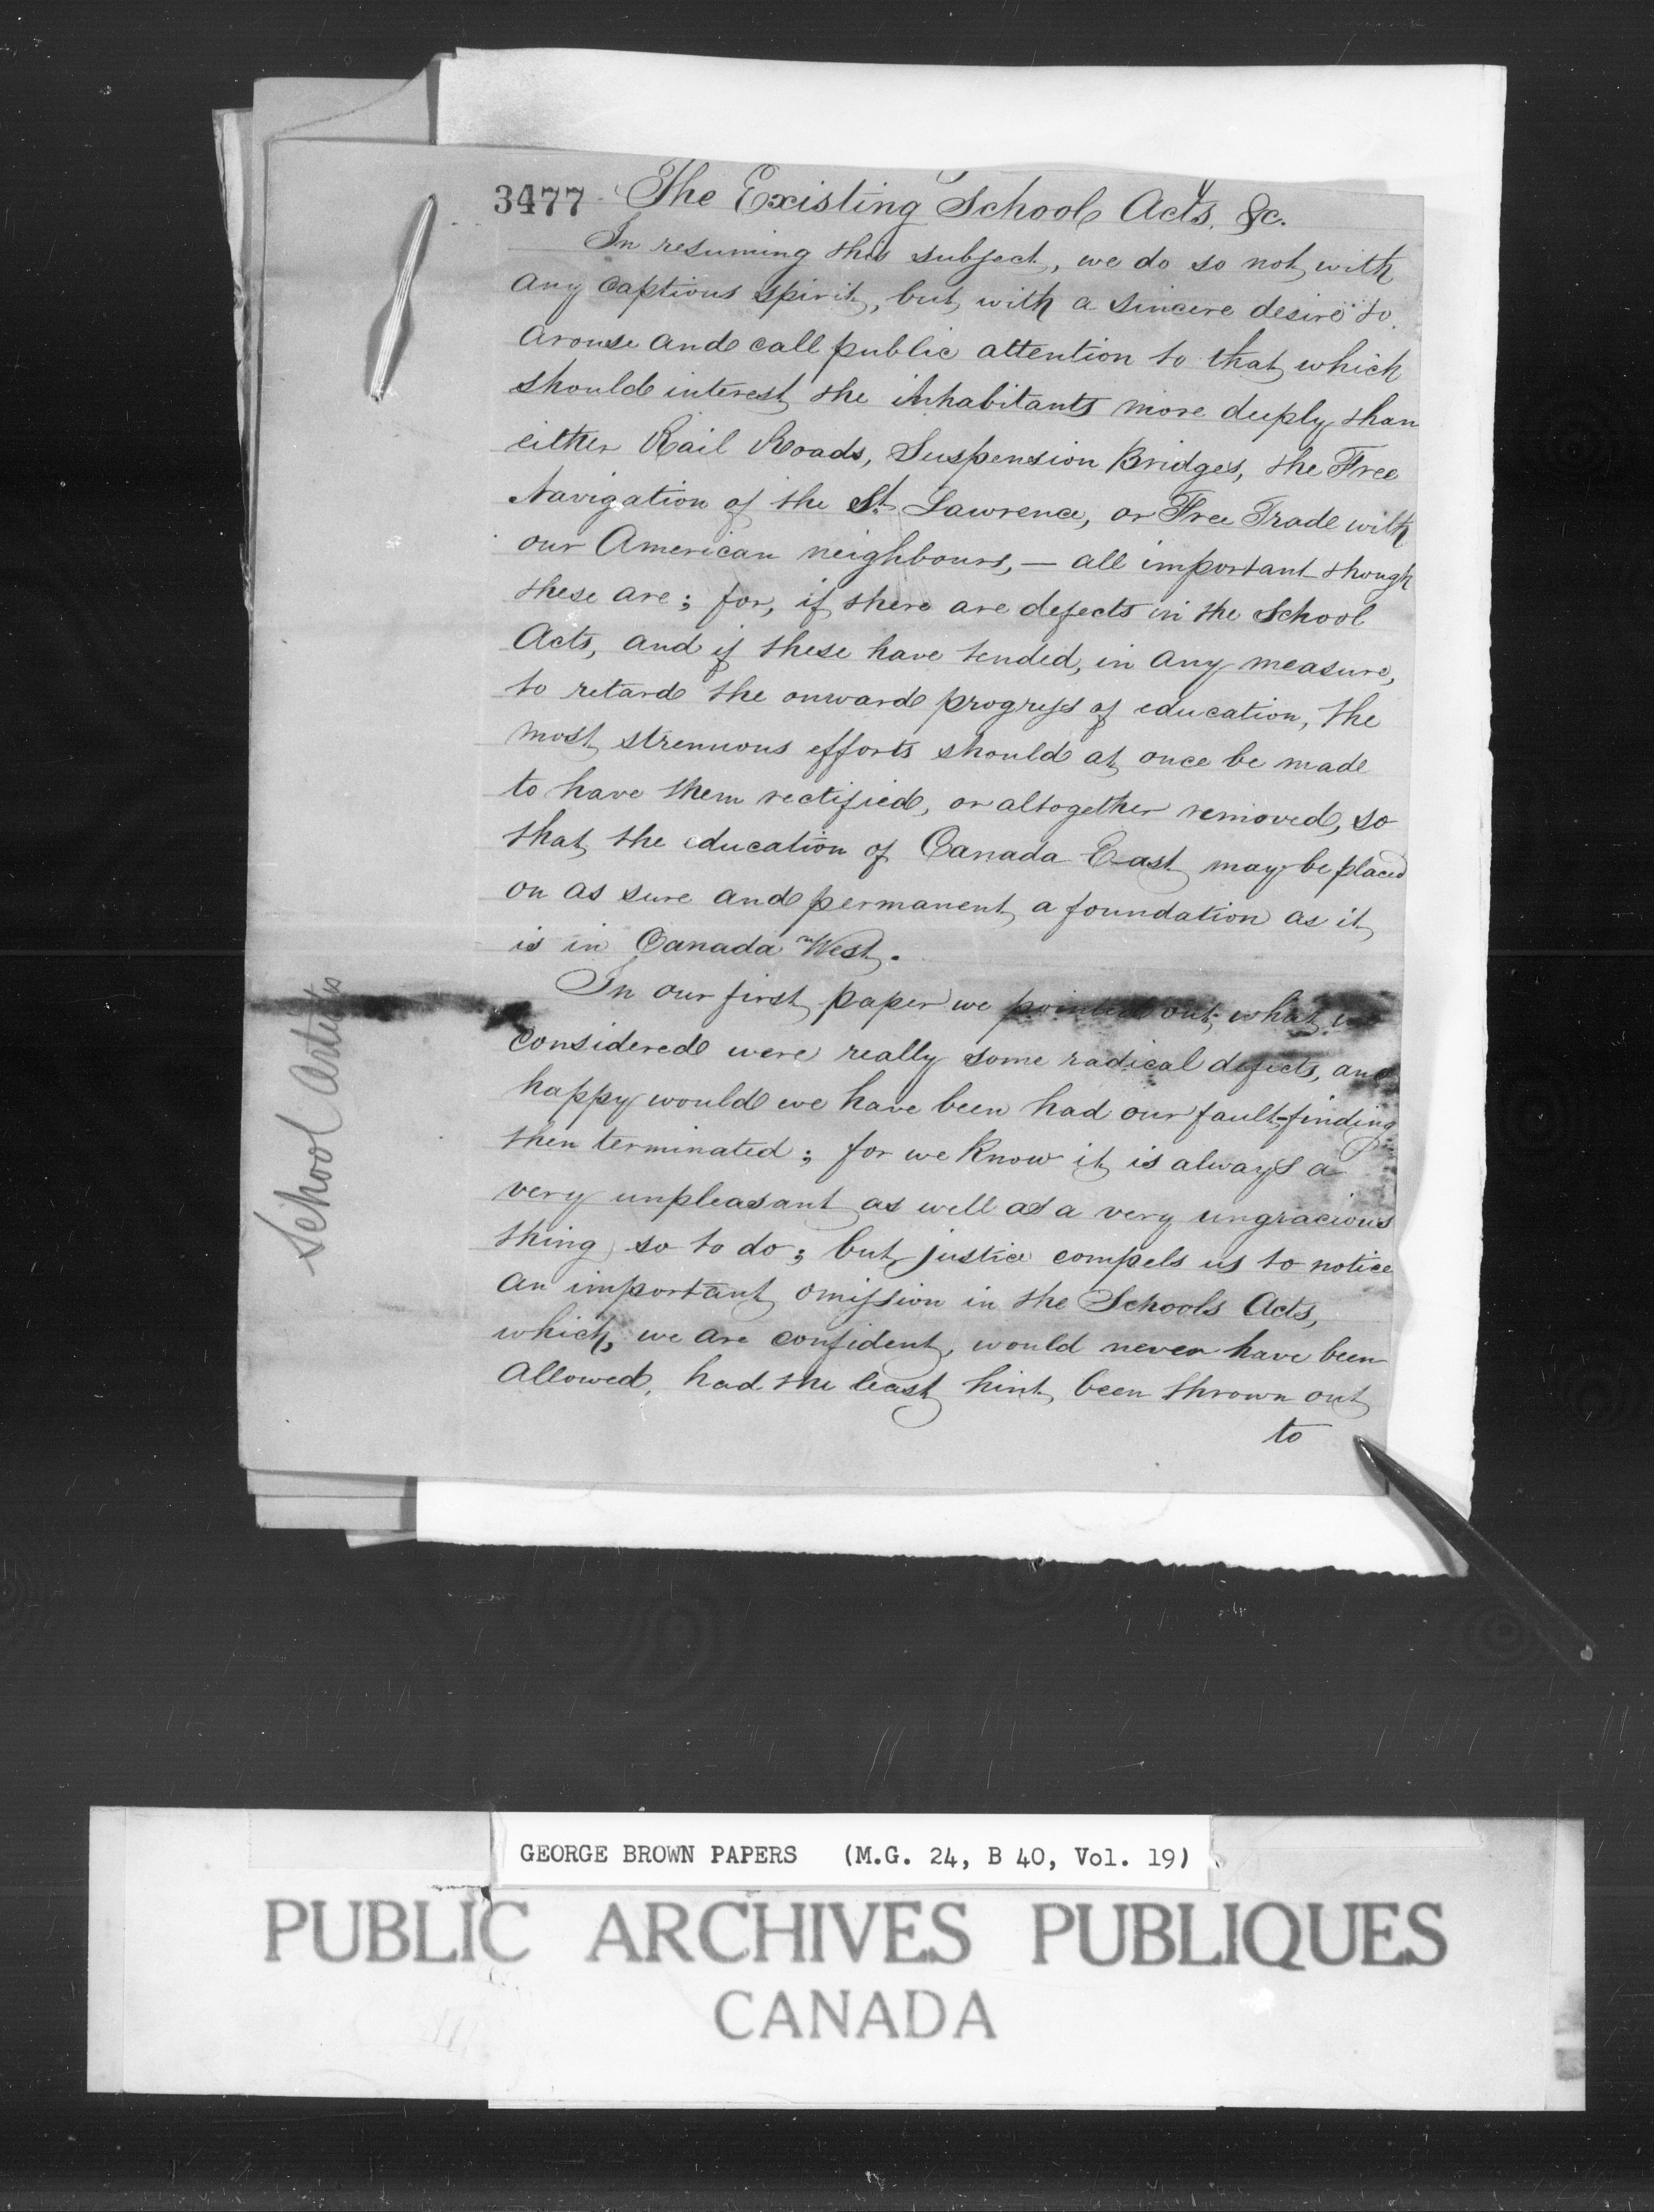 3477 The Existing School Acts, &c.
In resuming this subject, we do so not with
any captious spirit, but with a sincere desire to
arouse and call public attention to that which
should interest the inhabitants more deeply than
either Rail Roads, Suspension Bridges, the Free
Navigation of the St. Lawrence, or Free Trade with
our American neighbours, — all important though
these are; for, if there are defects in the School
Acts, and if these have tended, in any measure,
to retard the onward progress of education, the
most strenuous efforts should at once be made
to have them rectified, or altogether removed, so
that the education of Canada East may be placed
on as sure and permanent a foundation as it
is in Canada West.
In our first paper we pointed out, what we
considered were really some radical defects, and
happy would we have been had our fault-finding
then terminated; for we know it is always a
very unpleasant as well as a very ungracious
thing so to do; but justice compels us to notice
an important omission in the Schools Acts,
which, we are confident, would never have been
allowed, had the least hint been thrown out
to
School
GEORGE BROWN PAPERS (M.G. 24, B 40, Vol. 19)
PUBLIC ARCHIVES PUBLIQUES
CANADA